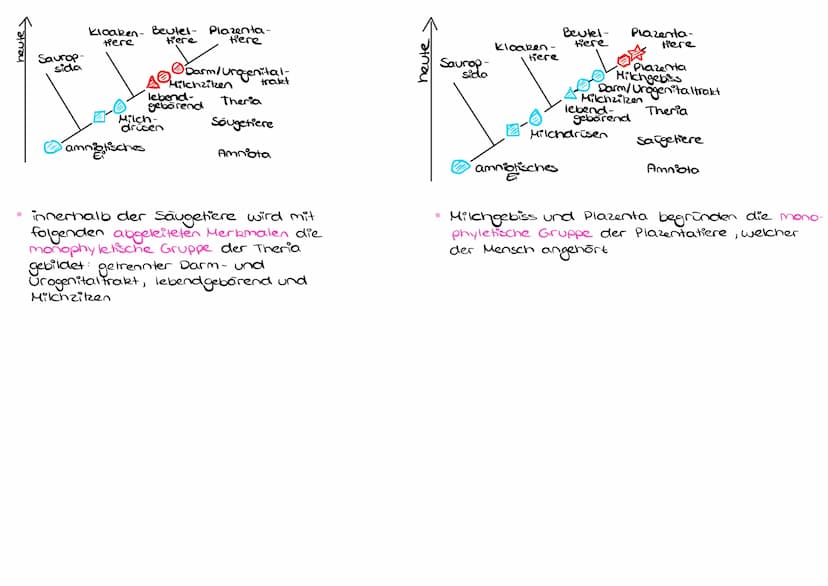 heute
Saurop-
sida
Kloaken-
tiere
Beutel-
tiere
Plazenta-
tiere
Darm/Urogenital-
trakt
Milchzitzen
lebend-
gebärend
Theria
Milch-
drüsen
Säugetiere
amniotisches
Ei
Amniota
* innerhalb der Säugetiere wird mit
folgenden abgeleiteten Merkmalen die
monophyletische Gruppe der Theria
gebildet: getrennter Darm- und
Urogenitaltrakt, lebendgebärend und
Milchzitzen
heute
Saurop-
sida
Kloaken-
tiere
Beutel-
tiere
Plazenta-
tiere
Plazenta
Milchgebiss
Darm/Urogenitaltrakt
Milchzitzen
lebend-
gebärend
Theria
Milchdrüsen
Säugetiere
amniotisches
Ei
Amniota
* Milchgebiss und Plazenta begründen die mono-
phyletische Gruppe der Plazentatiere, welcher
der Mensch angehört